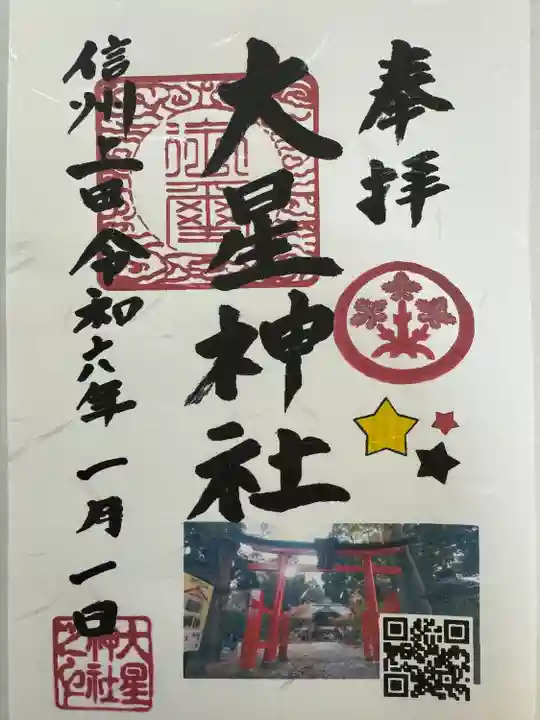 奉拝
大星神社
信州上田令和六年一月一日
大星神社之印